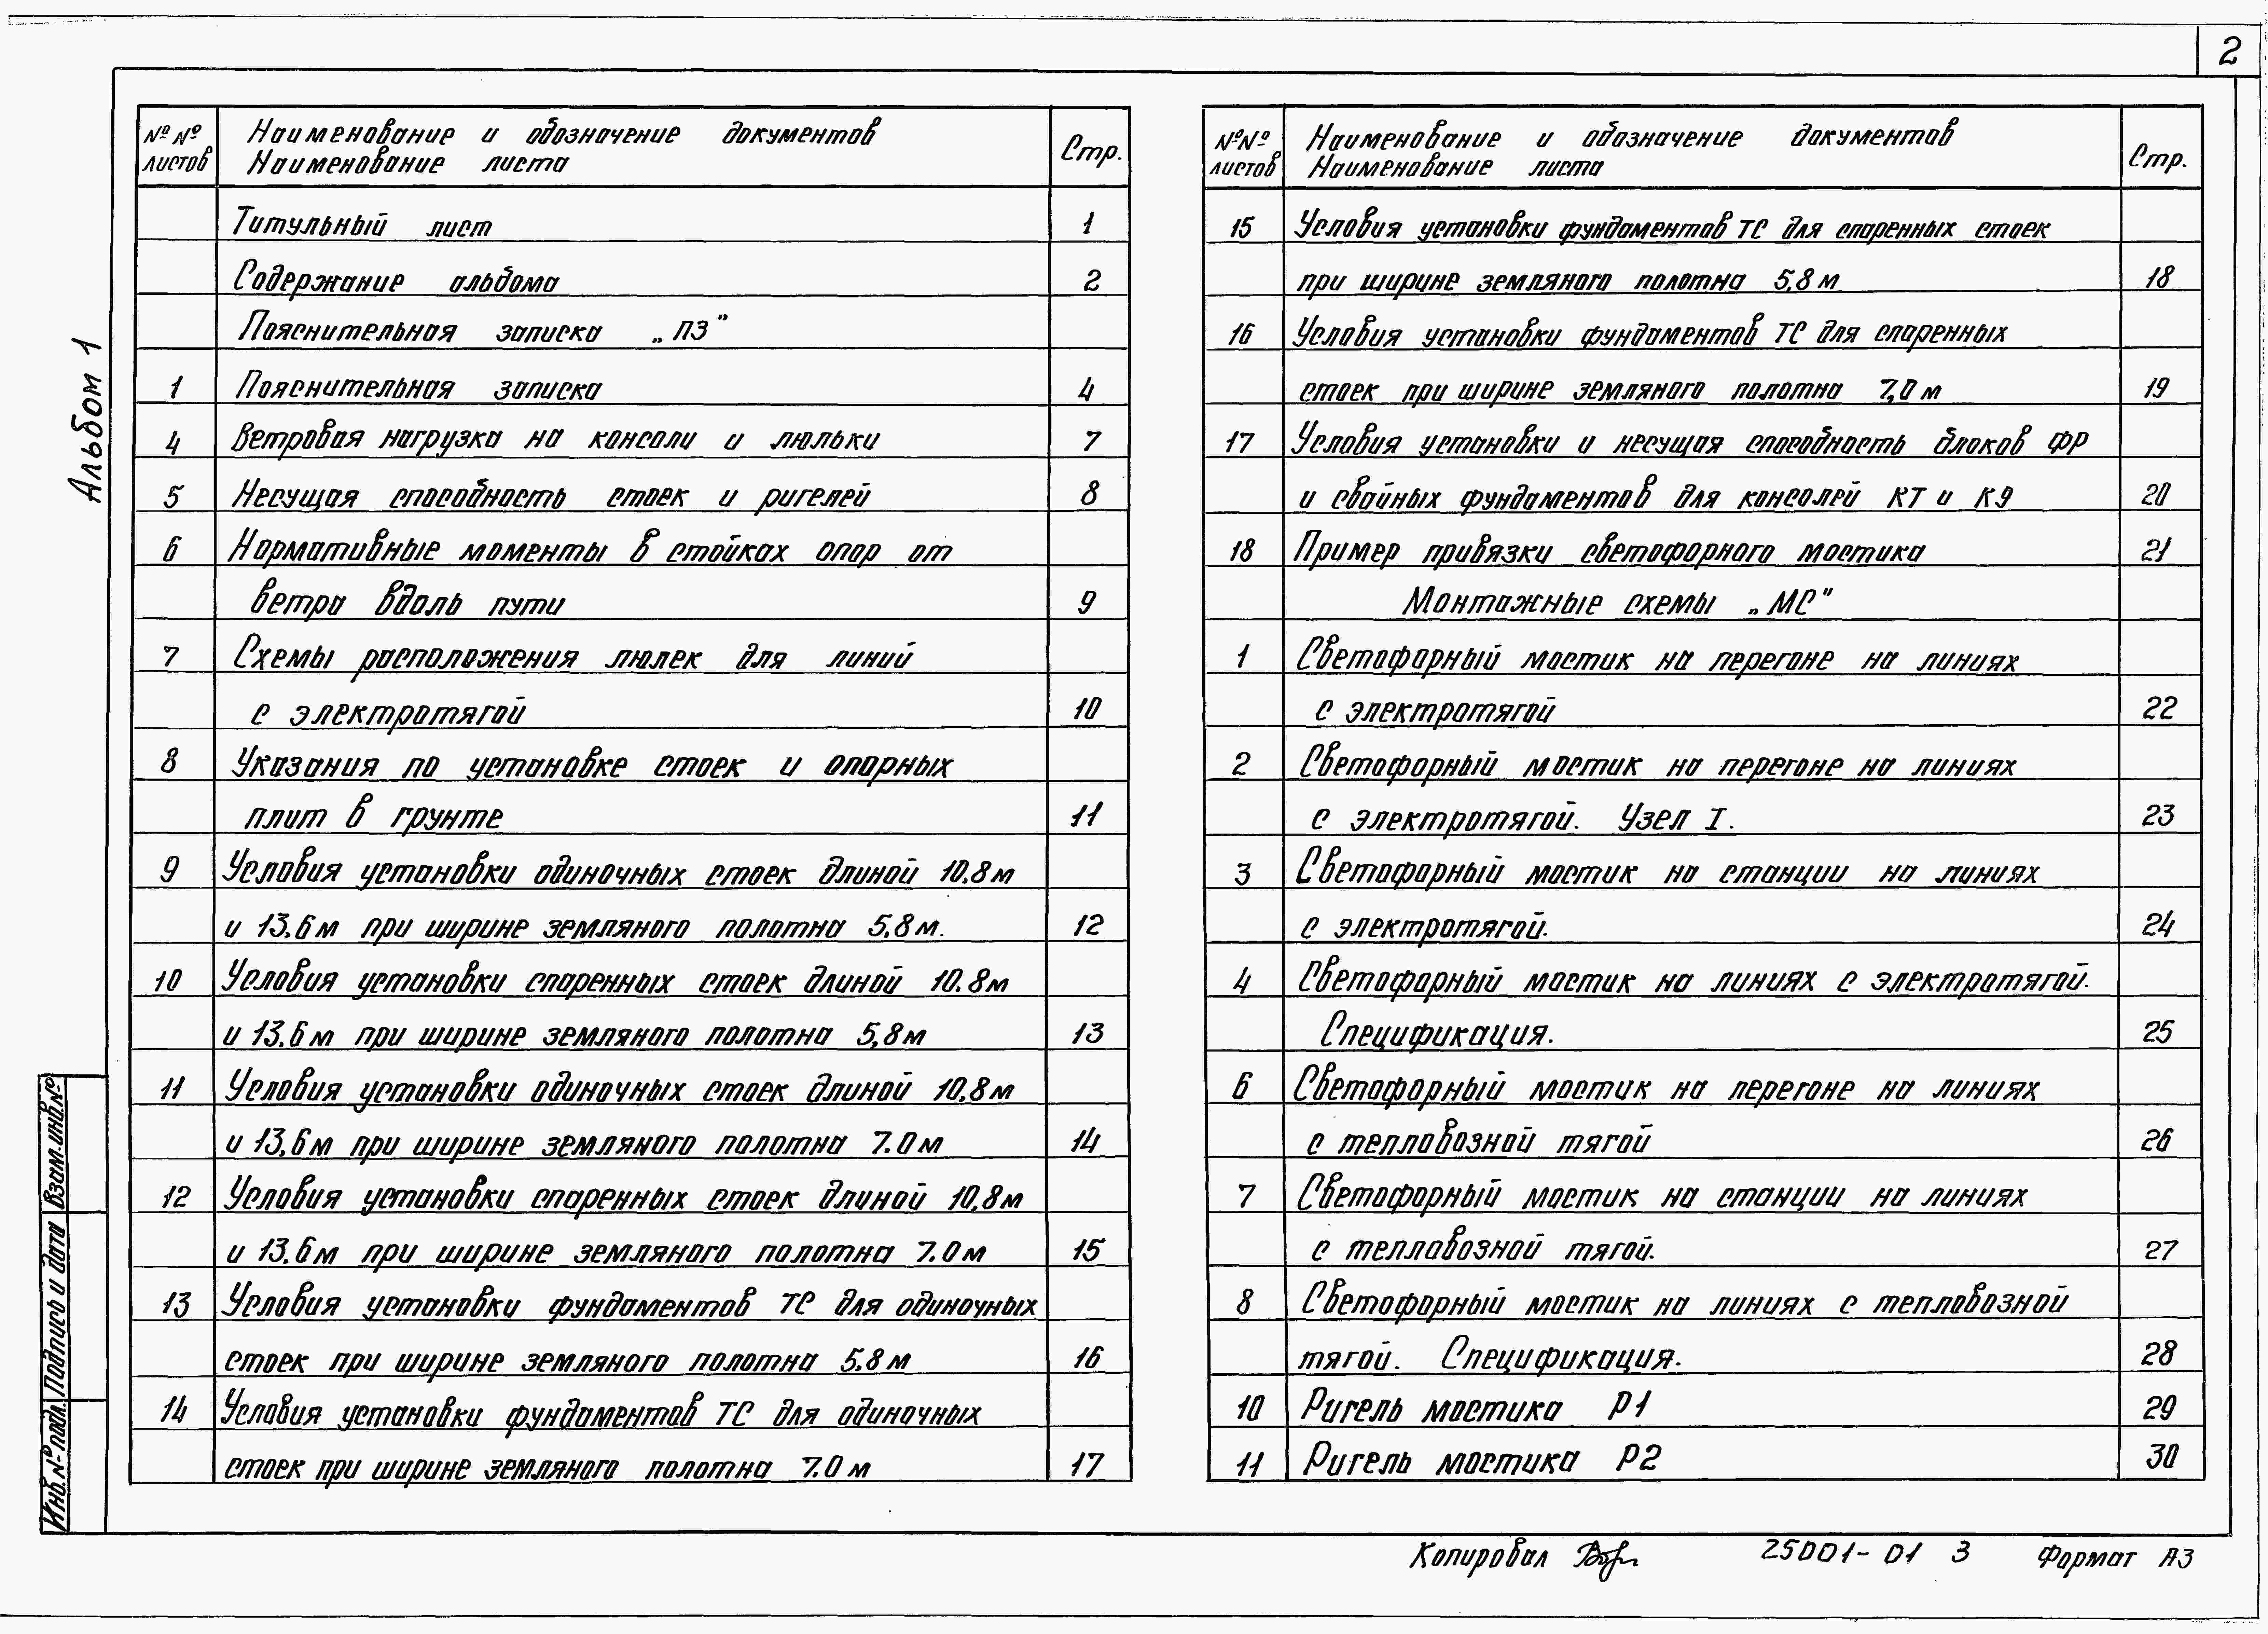 2
Альбом 1
№ № листов Наименование и обозначение документов Наименование листа Стр.
Титульный лист 1
Содержание альбома 2
Пояснительная записка „ПЗ"
1 Пояснительная записка 4
4 Ветровая нагрузка на консоли и люльки 7
5 Несущая способность стоек и ригелей 8
6 Нормативные моменты в стойках опор от
ветра вдоль пути 9
7 Схемы расположения люлек для линий
с электротягой 10
8 Указания по установке стоек и опорных
плит в грунте 11
9 Условия установки одиночных стоек длиной 10,8 м
и 13.6 м при ширине земляного полотна 5,8 м. 12
10 Условия установки спаренных стоек длиной 10.8 м
и 13.6 м при ширине земляного полотна 5,8 м 13
11 Условия установки одиночных стоек длиной 10,8 м
и 13,6 м при ширине земляного полотна 7.0 м 14
12 Условия установки спаренных стоек длиной 10,8 м
и 13.6 м при ширине земляного полотна 7.0 м 15
13 Условия установки фундаментов ТС для одиночных
стоек при ширине земляного полотна 5.8 м 16
14 Условия установки фундаментов ТС для одиночных
стоек при ширине земляного полотна 7.0 м 17
№ № листов Наименование и обозначение документов Наименование листа Стр.
15 Условия установки фундаментов ТС для спаренных стоек
при ширине земляного полотна 5,8 м 18
16 Условия установки фундаментов ТС для спаренных
стоек при ширине земляного полотна 7,0 м 19
17 Условия установки и несущая способность блоков ФР
и свайных фундаментов для консолей КТ и КЭ 20
18 Пример привязки светофорного мостика 21
Монтажные схемы „МС"
1 Светофорный мостик на перегоне на линиях
с электротягой 22
2 Светофорный мостик на перегоне на линиях
с электротягой. Узел I. 23
3 Светофорный мостик на станции на линиях
с электротягой. 24
4 Светофорный мостик на линиях с электротягой.
Спецификация. 25
6 Светофорный мостик на перегоне на линиях
с тепловозной тягой 26
7 Светофорный мостик на станции на линиях
с тепловозной тягой. 27
8 Светофорный мостик на линиях с тепловозной
тягой. Спецификация. 28
10 Ригель мостика Р1 29
11 Ригель мостика Р2 30
Инв. № подл. Подпись и дата Взам. инв. №
Копировал 25001-01 3 Формат А3